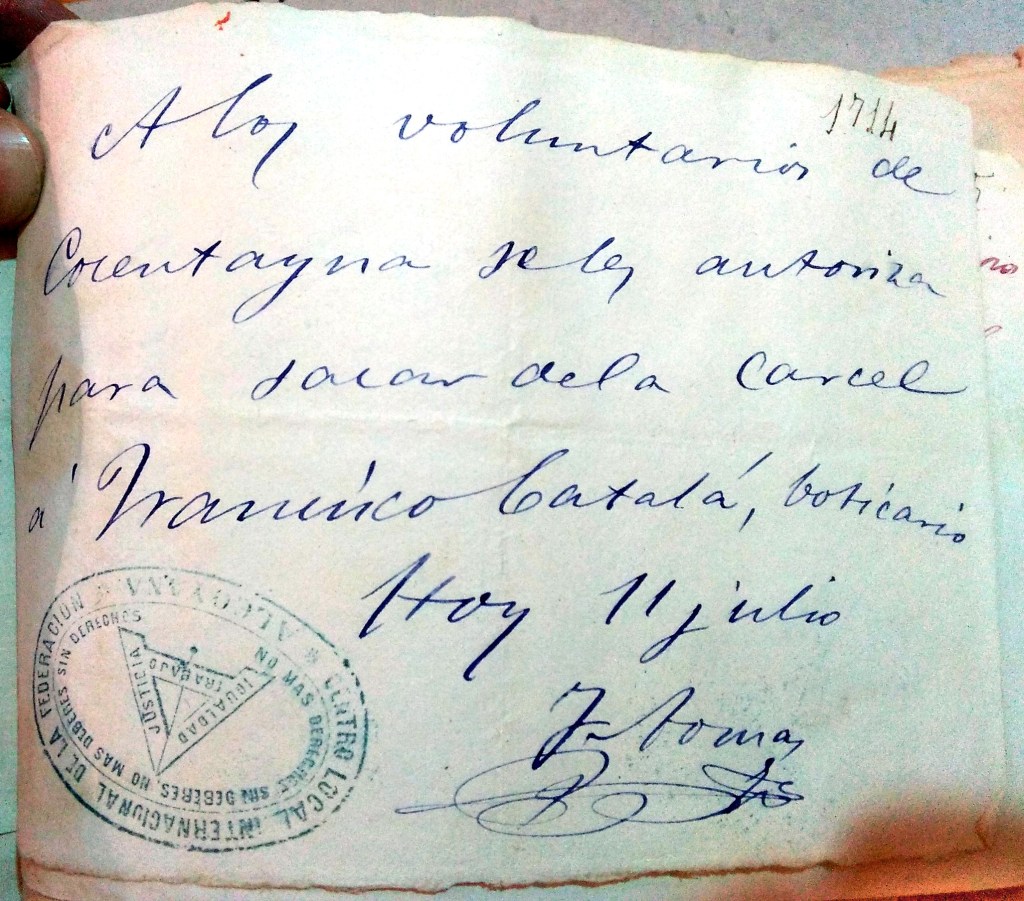 1714
A los voluntarios de
Cocentayna se les autoriza
para sacar de la Carcel
á Francisco Catalá, boticario
Hoy 11 julio
F. Tomas
CENTRO LOCAL INTERNACIONAL DE LA FEDERACION ALCOYANA
NO MAS DERECHOS SIN DEBERES, NO MAS DEBERES SIN DERECHOS
TRABAJO
JUSTICIA
IGUALDAD